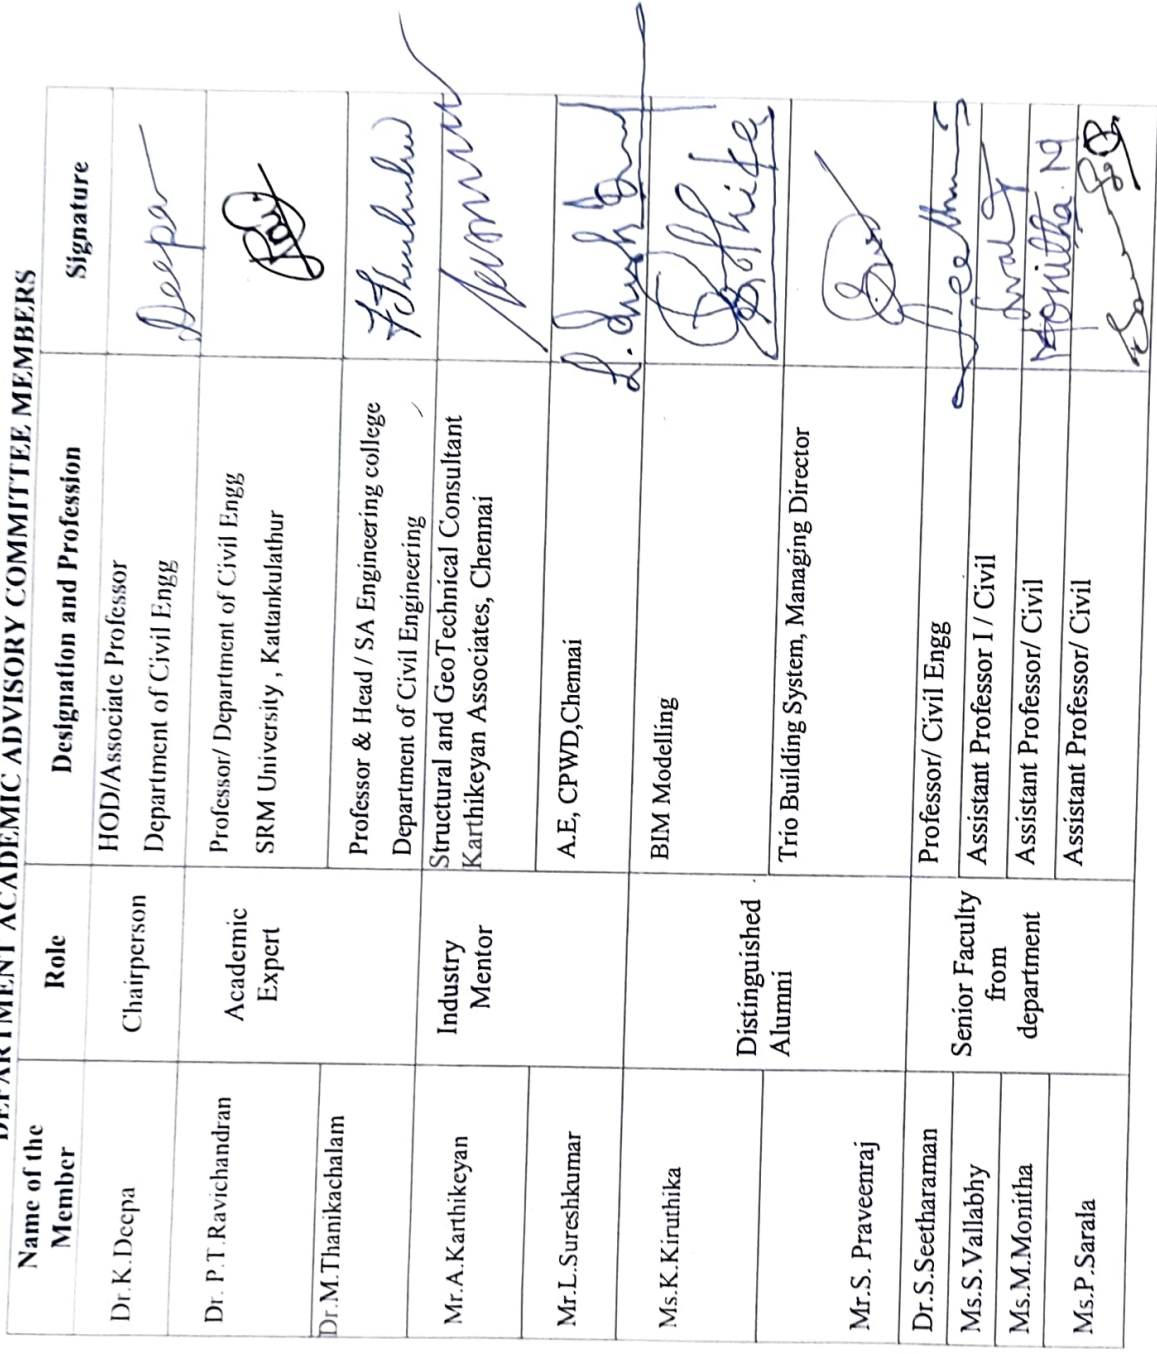 DEPARTMENT ACADEMIC ADVISORY COMMITTEE MEMBERS
Name of the Member Role Designation and Profession Signature
Dr.K.Deepa Chairperson HOD/Associate Professor
Department of Civil Engg
Deepa
Dr. P.T.Ravichandran Academic Expert Professor/ Department of Civil Engg
SRM University , Kattankulathur
Dr.M.Thanikachalam Professor & Head / SA Engineering college
Department of Civil Engineering
Mr.A.Karthikeyan Industry Mentor Structural and GeoTechnical Consultant
Karthikeyan Associates, Chennai
Mr.L.Sureshkumar A.E, CPWD,Chennai
Ms.K.Kiruthika Distinguished Alumni BIM Modelling
Mr.S. Praveenraj Trio Building System, Managing Director
Dr.S.Seetharaman Senior Faculty from department Professor/ Civil Engg
Ms.S.Vallabhy Assistant Professor I / Civil
Ms.M.Monitha Assistant Professor/ Civil
Monitha. M
Ms.P.Sarala Assistant Professor/ Civil